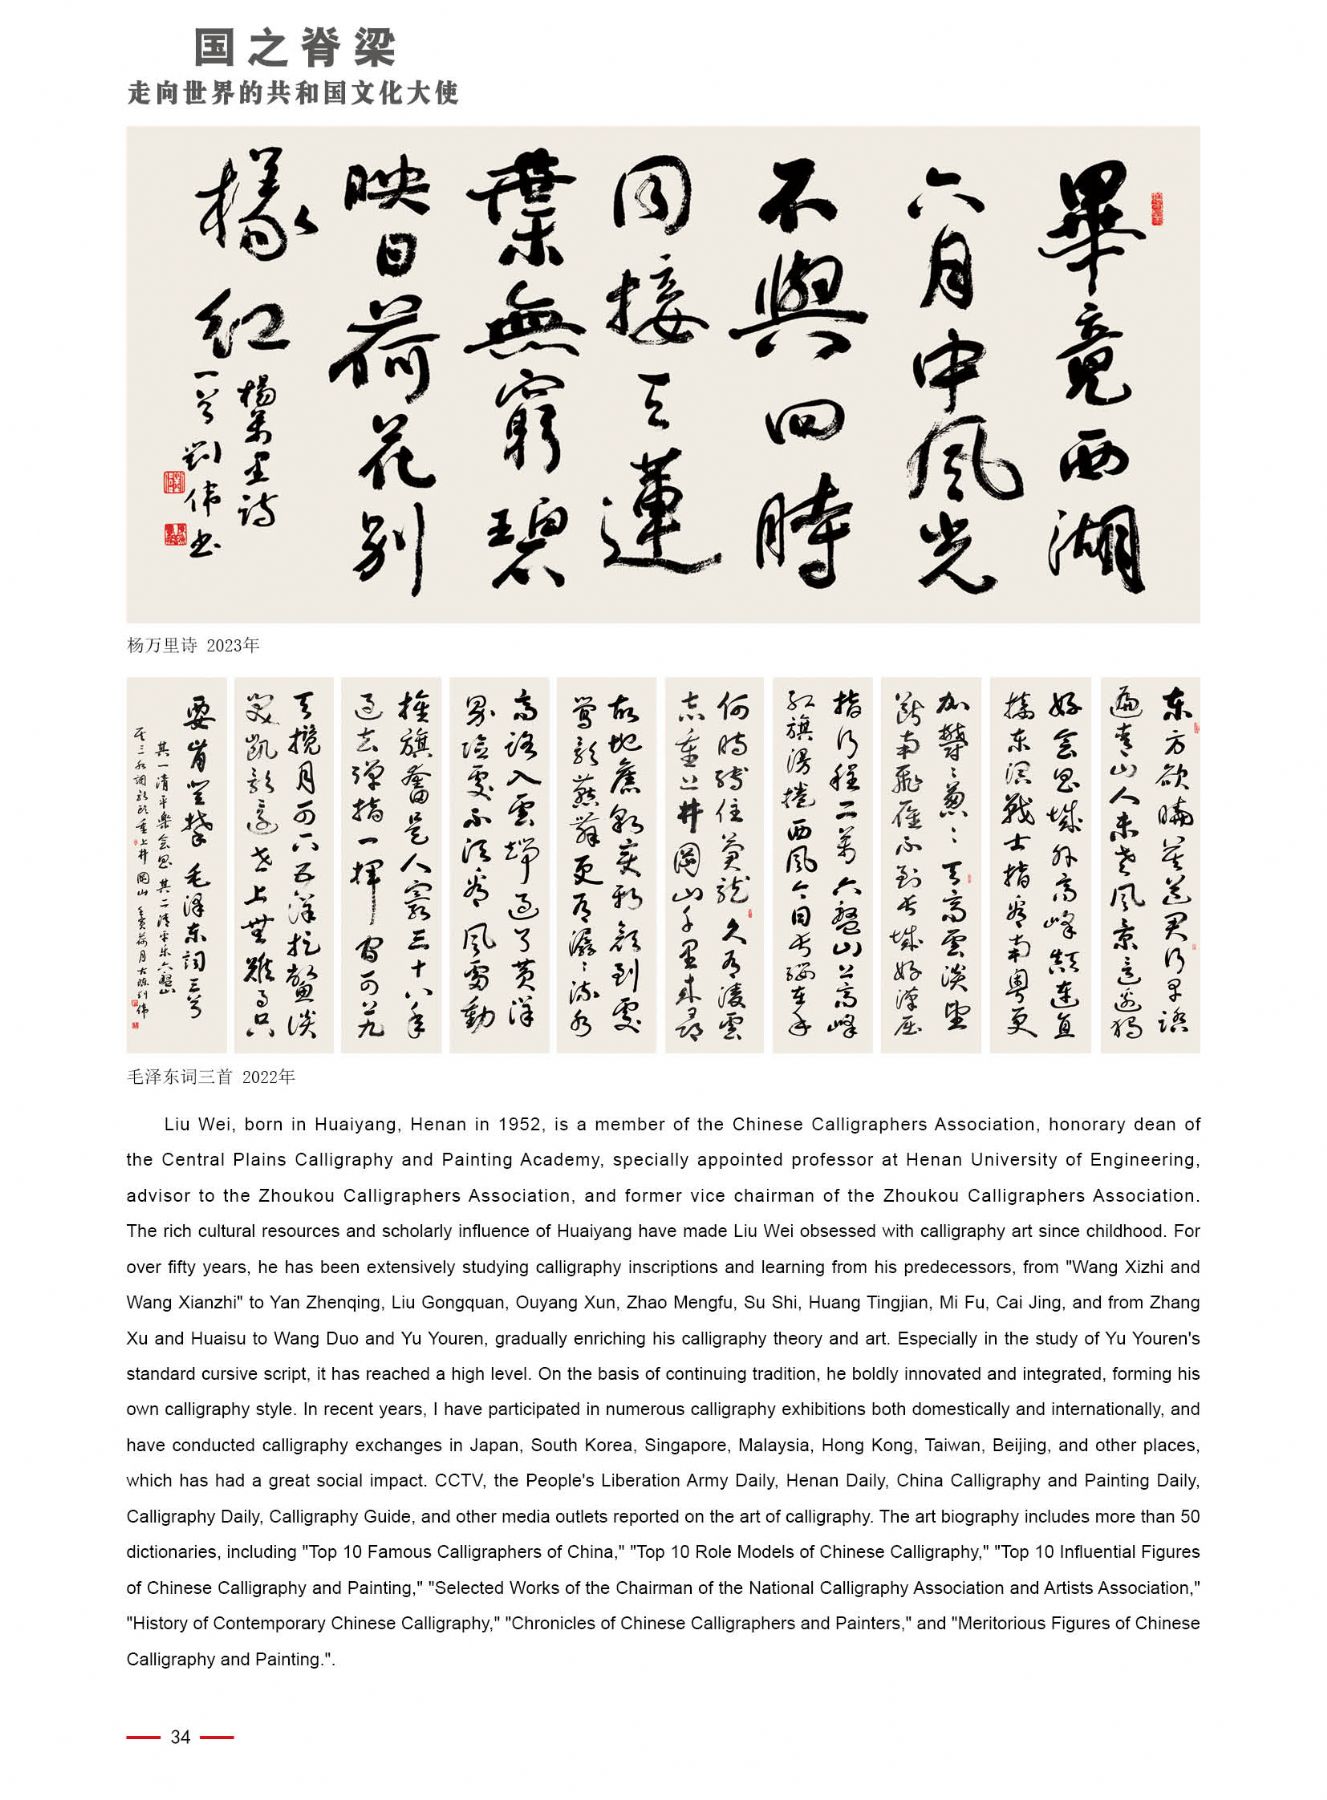 国之脊梁
走向世界的共和国文化大使
畢竟西湖
六月中風光
不與四時
同接天蓮
葉無窮碧
映日荷花别
樣紅
楊萬里詩
一首 劉伟书
杨万里诗 2023年
东方欲曉莫道君行早踏
遍青山人未老風景這邊獨
好會昌城外高峰顛連直
接东溟戰士指看南粤更
加鬱鬱蔥蔥天高雲淡望
斷南飛雁不到长城好漢屈
指行程二萬六盤山上高峰
红旗漫捲西風今日长纓在手
何時縛住蒼龍久有凌雲
志重上井岡山千里来尋
故地舊貌變新顔到處
鶯歌燕舞更有潺潺流水
高路入雲端過了黄洋
界險處不須看風雷動
旌旗奮是人寰三十八年
過去彈指一揮間可上九
天攬月可下五洋捉鱉談
笑凯歌還世上無難事只
要肯登攀 毛泽东詞三首
其一清平樂會昌 其二清平乐六盤山
其三水调歌头重上井岡山
毛泽东词三首 2022年
Liu Wei, born in Huaiyang, Henan in 1952, is a member of the Chinese Calligraphers Association, honorary dean of
the Central Plains Calligraphy and Painting Academy, specially appointed professor at Henan University of Engineering,
advisor to the Zhoukou Calligraphers Association, and former vice chairman of the Zhoukou Calligraphers Association.
The rich cultural resources and scholarly influence of Huaiyang have made Liu Wei obsessed with calligraphy art since childhood. For
over fifty years, he has been extensively studying calligraphy inscriptions and learning from his predecessors, from "Wang Xizhi and
Wang Xianzhi" to Yan Zhenqing, Liu Gongquan, Ouyang Xun, Zhao Mengfu, Su Shi, Huang Tingjian, Mi Fu, Cai Jing, and from Zhang
Xu and Huaisu to Wang Duo and Yu Youren, gradually enriching his calligraphy theory and art. Especially in the study of Yu Youren's
standard cursive script, it has reached a high level. On the basis of continuing tradition, he boldly innovated and integrated, forming his
own calligraphy style. In recent years, I have participated in numerous calligraphy exhibitions both domestically and internationally, and
have conducted calligraphy exchanges in Japan, South Korea, Singapore, Malaysia, Hong Kong, Taiwan, Beijing, and other places,
which has had a great social impact. CCTV, the People's Liberation Army Daily, Henan Daily, China Calligraphy and Painting Daily,
Calligraphy Daily, Calligraphy Guide, and other media outlets reported on the art of calligraphy. The art biography includes more than 50
dictionaries, including "Top 10 Famous Calligraphers of China," "Top 10 Role Models of Chinese Calligraphy," "Top 10 Influential Figures
of Chinese Calligraphy and Painting," "Selected Works of the Chairman of the National Calligraphy Association and Artists Association,"
"History of Contemporary Chinese Calligraphy," "Chronicles of Chinese Calligraphers and Painters," and "Meritorious Figures of Chinese
Calligraphy and Painting.".
34